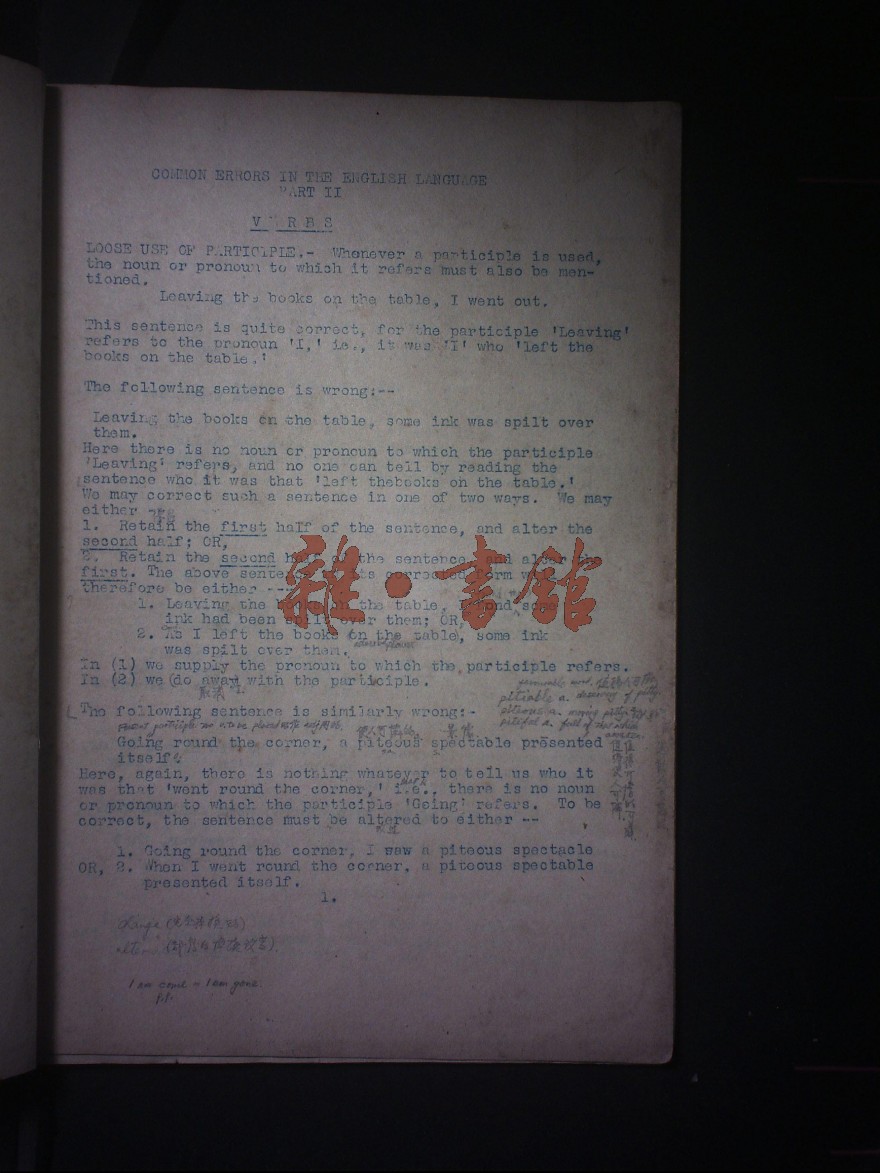 COMMON ERRORS IN THE ENGLISH LANGUAGE
PART II
V E R B S
LOOSE USE OF PARTICIPLE.- Whenever a participle is used,
the noun or pronoun to which it refers must also be men-
tioned.
Leaving the books on the table, I went out.
This sentence is quite correct, for the participle 'Leaving'
refers to the pronoun 'I,' ie., it was 'I' who 'left the
books on the table.'
The following sentence is wrong:--
Leaving the books on the table, some ink was spilt over
them.
Here there is no noun or pronoun to which the participle
'Leaving' refers, and no one can tell by reading the
sentence who it was that 'left thebooks on the table.'
We may correct such a sentence in one of two ways. We may
either
1. Retain the first half of the sentence, and alter the
second half; OR,
2. Retain the second half of the sentence, and alter the
first. The above sentence in its corrected form will
therefore be either ---
雜·書館
1. Leaving the books on the table, I found some
ink had been spilt over them; OR,
2. As I left the books on the table, some ink
was spilt over them.
In (1) we supply the pronoun to which the participle refers.
In (2) we do away with the participle.
取消
pitiable a. deserving of pity
piteous a.
pitiful a. full of
The following sentence is similarly wrong:-
Going round the corner, a piteous spectable presented
itself.
Here, again, there is nothing whatever to tell us who it
was that 'went round the corner,' i.e., there is no noun
or pronoun to which the participle 'Going' refers. To be
correct, the sentence must be altered to either --
1. Going round the corner, I saw a piteous spectacle
OR, 2. When I went round the corner, a piteous spectable
presented itself.
1.
I am come = I am gone.
p.p.